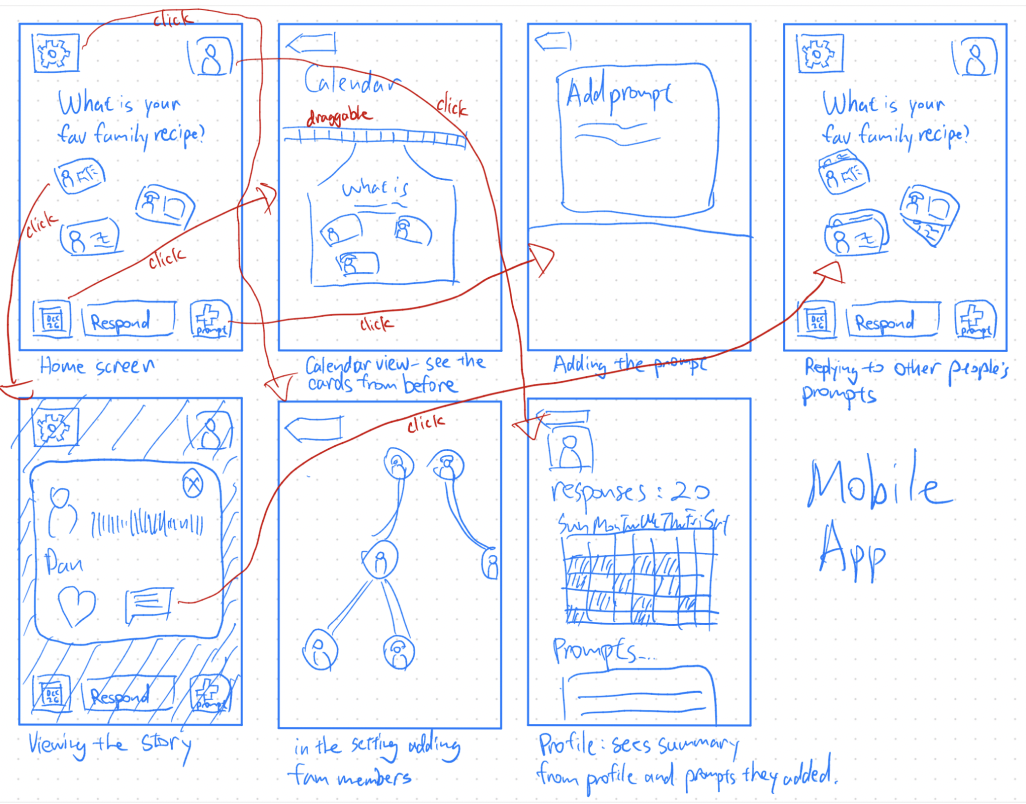 click
What is your
fav family recipe?
click
click
DEC
26
Respond
prompt
Home screen
Calendar
click
draggable
What is
click
Calendar view - see the
cards from before
Add prompt
Adding the prompt
What is your
fav family recipe?
DEC
26
Respond
prompt
Replying to other people's
prompts
Dan
DEC
26
Respond
prompt
Viewing the story
click
in the setting adding
fam members
responses : 20
Sun Mon Tue We Thu Fri Sat
Prompts...
Profile: sees summary
from profile and prompts they added.
Mobile
App